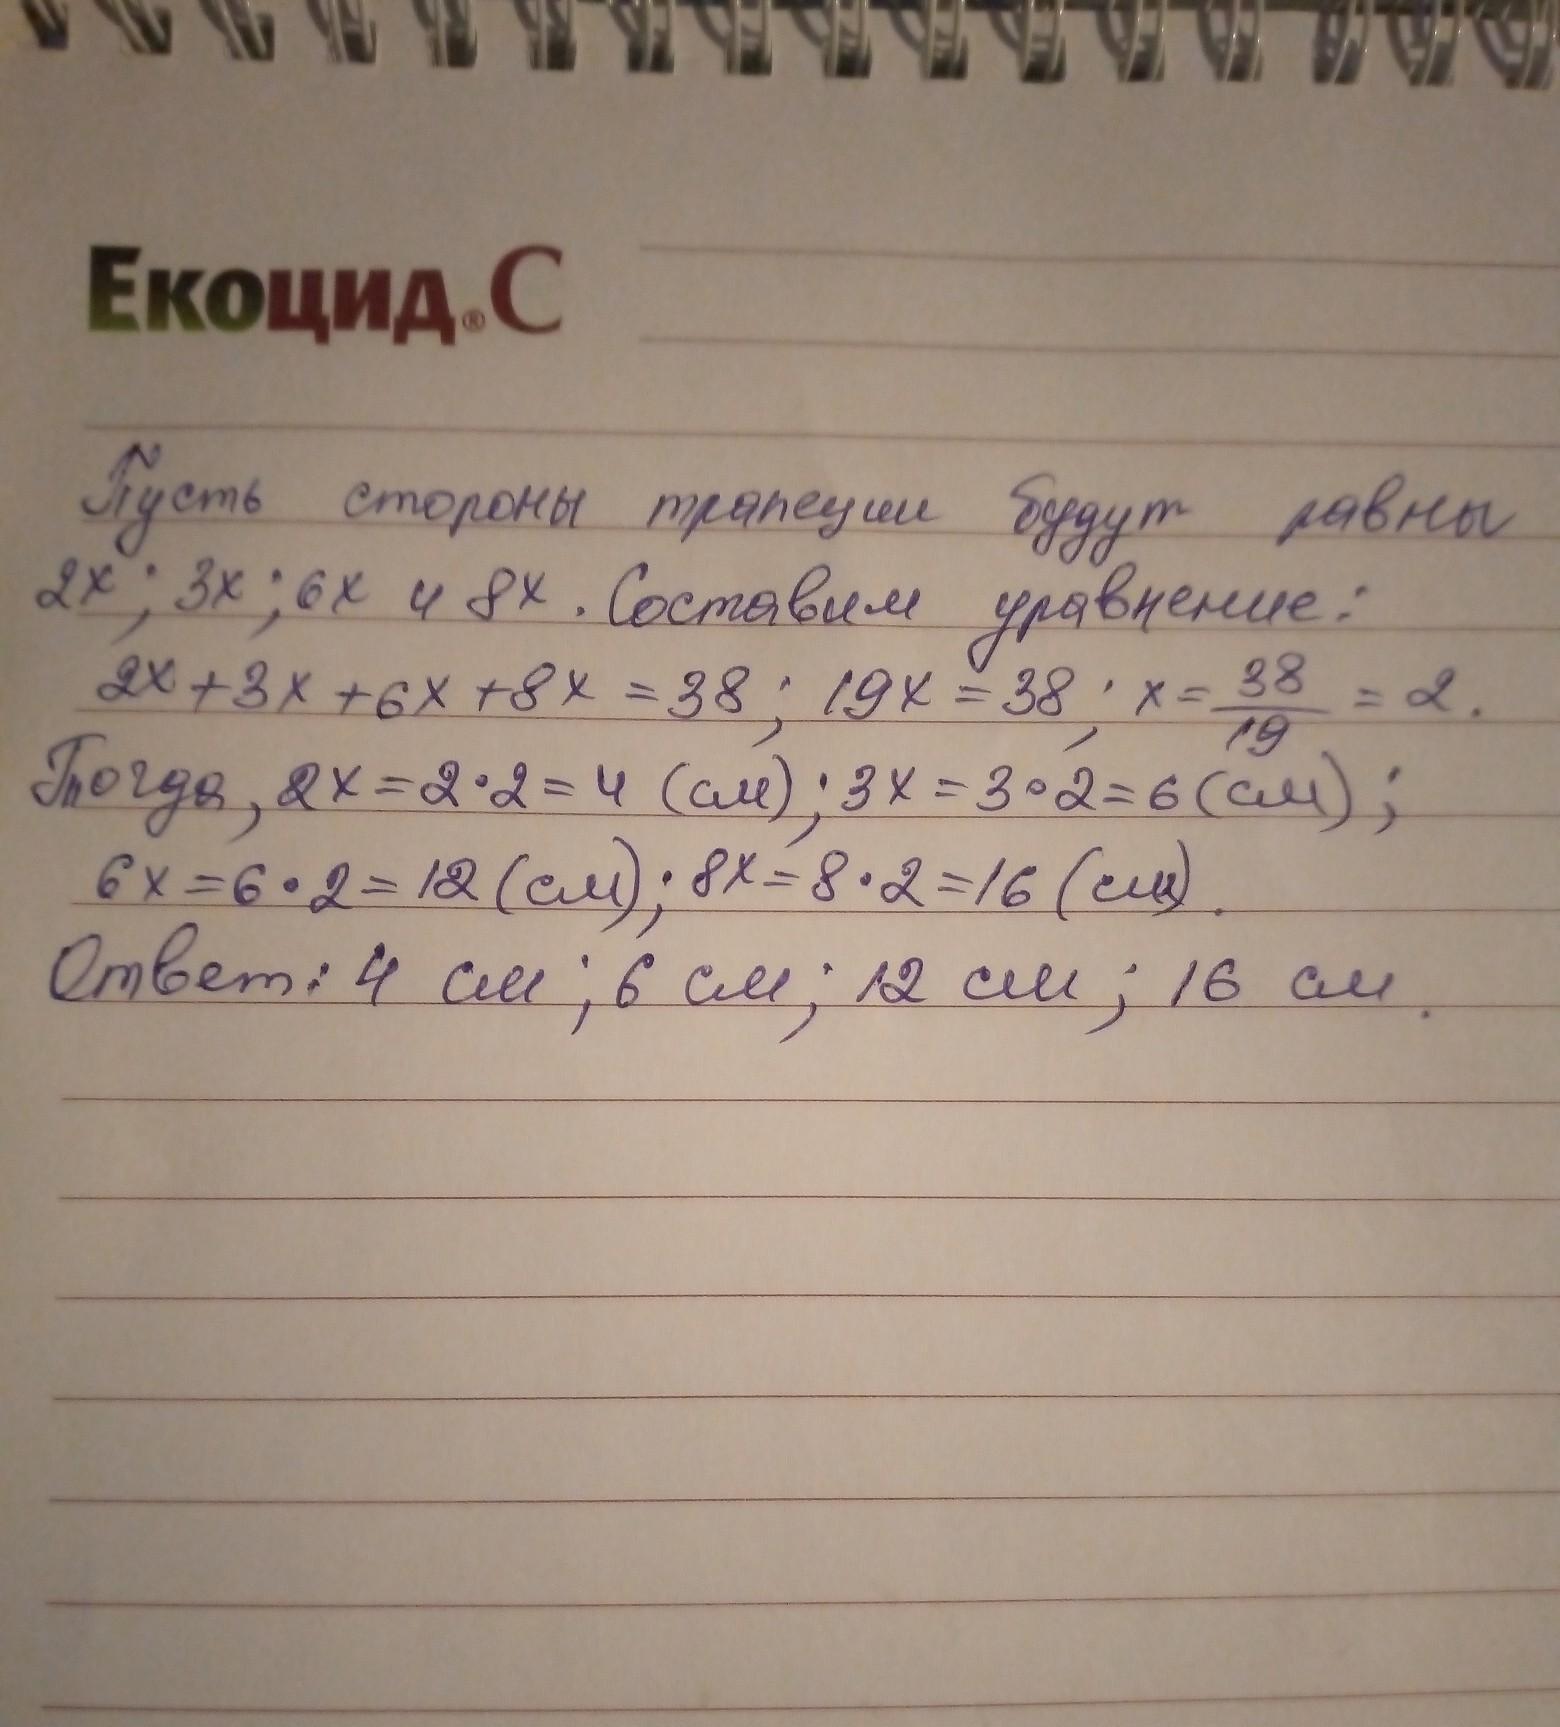 Екоцид®С
Пусть стороны трапеции будут равны
2x; 3x; 6x и 8x. Составим уравнение:
2x+3x+6x+8x=38; 19x=38; x=38/19=2.
Тогда, 2x=2·2=4 (см); 3x=3·2=6(см);
6x=6·2=12(см); 8x=8·2=16(см).
Ответ: 4 см; 6 см; 12 см; 16 см.